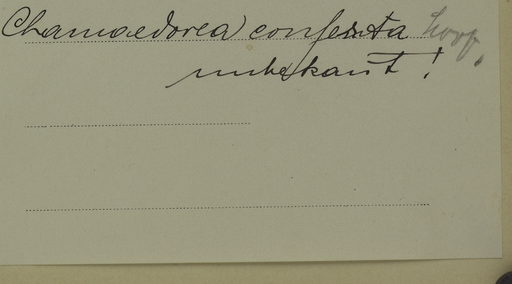 Chamaedorea conferta
unbekant!